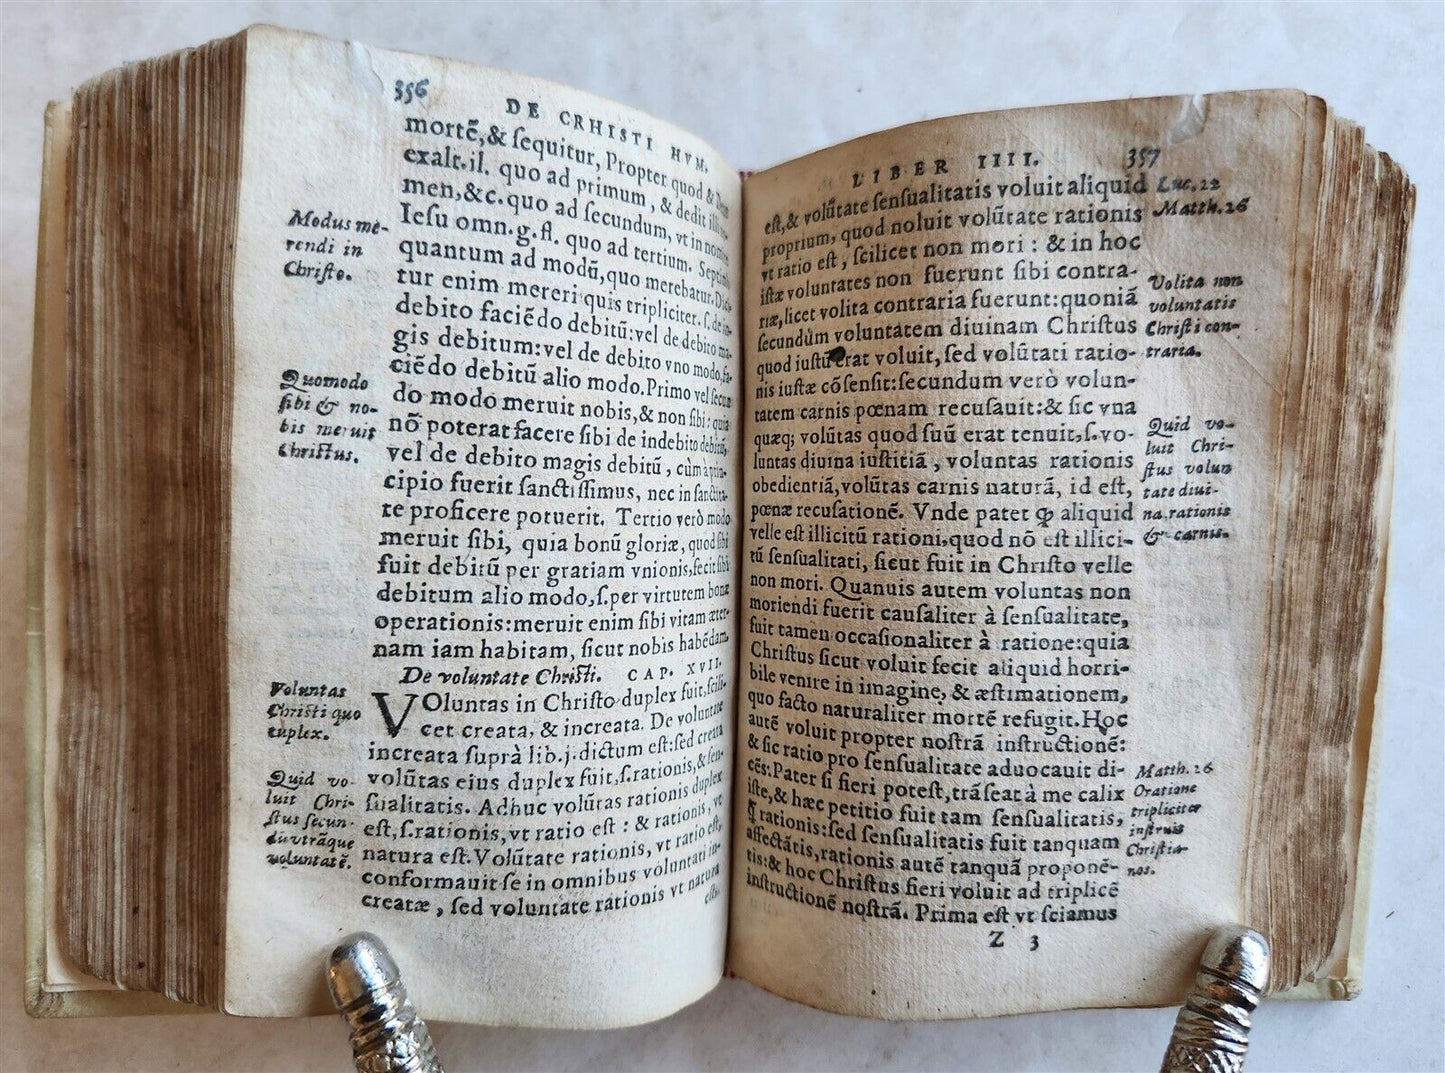 356
DE CRHISTI HVM.
mortē, & ſequitur, Propter quod & Deus
exalt. il. quo ad primum, & dedit illi no-
men, &c. quo ad ſecundum, vt in nomine
Ieſu omn. g. fl. quo ad tertium. Septimò
quantum ad modū, quo merebatur. Dici-
tur enim mereri quis tripliciter. ſ. de in-
debito faciēdo debitū: vel de debito ma-
gis debitum: vel de debito vno modo, fa-
ciēdo debitū alio modo. Primo vel ſecun
do modo meruit nobis, & non ſibi: quia
nō poterat facere ſibi de indebito debitū,
vel de debito magis debitū, cùm à prin-
cipio fuerit ſanctiſſimus, nec in ſanctita-
te proficere potuerit. Tertio verò modo
meruit ſibi, quia bonū gloriæ, quod ſibi
fuit debitū per gratiam vnionis, fecit ſibi
debitum alio modo, ſ. per virtutem bonæ
operationis: meruit enim ſibi vitam æter-
nam iam habitam, ſicut nobis habēdam.
De voluntate Chriſti. CAP. XVII.
VOluntas in Chriſto duplex fuit, ſcili-
cet creata, & increata. De voluntate
increata ſuprà lib. j. dictum eſt: ſed creata
volūtas eius duplex fuit, ſ. rationis, & ſen-
ſualitatis. Adhuc volūtas rationis duplex
eſt, ſ. rationis, vt ratio eſt: & rationis, vt
natura eſt. Volūtate rationis, vt ratio eſt,
conformauit ſe in omnibus voluntati in-
creatæ, ſed voluntate rationis vt natura
eſt,
Modus me-
rendi in
Chriſto.
Quomodo
ſibi & no-
bis meruit
Chriſtus.
Voluntas
Chriſti quo
tuplex.
Quid vo-
luit Chri-
ſtus ſecun-
dū vtrāque
voluntatē.
LIBER IIII.
357
eſt, & volūtate ſenſualitatis voluit aliquid
proprium, quod noluit volūtate rationis
vt ratio eſt, ſcilicet non mori: & in hoc
iſtæ voluntates non fuerunt ſibi contra-
riæ, licet volita contraria fuerunt: quoniā
ſecundùm voluntatem diuinam Chriſtus
quod iuſtū erat voluit, ſed volūtati ratio-
nis iuſtæ cōſenſit: ſecundum verò volun-
tatem carnis pœnam recuſauit: & ſic vna
quæq; volūtas quod ſuū erat tenuit, ſ. vo-
luntas diuina iuſtitiā, voluntas rationis
obedientiā, volūtas carnis naturā, id eſt,
pœnæ recuſationē. Vnde patet ꝙ aliquid
velle eſt illicitū rationi, quod nō eſt illici-
tū ſenſualitati, ſicut fuit in Chriſto velle
non mori. Quanuis autem voluntas non
moriendi fuerit cauſaliter à ſenſualitate,
fuit tamen occaſionaliter à ratione: quia
Chriſtus ſicut voluit fecit aliquid horri-
bile venire in imagine, & æſtimationem,
quo facto naturaliter mortē refugit. Hoc
autē voluit propter noſtrā inſtructionē:
& ſic ratio pro ſenſualitate aduocauit di-
cēs: Pater ſi fieri poteſt, trāſeat à me calix
iſte, & hæc petitio fuit tam ſenſualitatis,
ꝗ̃ rationis: ſed ſenſualitatis fuit tanquam
affectātis, rationis autē tanquā proponē-
tis: & hoc Chriſtus fieri voluit ad triplicē
inſtructionē noſtrā. Prima eſt vt ſciamus
Z 3
Luc. 22
Matth. 26
Volita non
voluntatis
Chriſti con-
traria.
Quid vo-
luit Chri-
ſtus volun
tate diui-
na, rationis
& carnis.
Matth. 26
Oratione
tripliciter
inſtruis
Chriſtia-
nos.